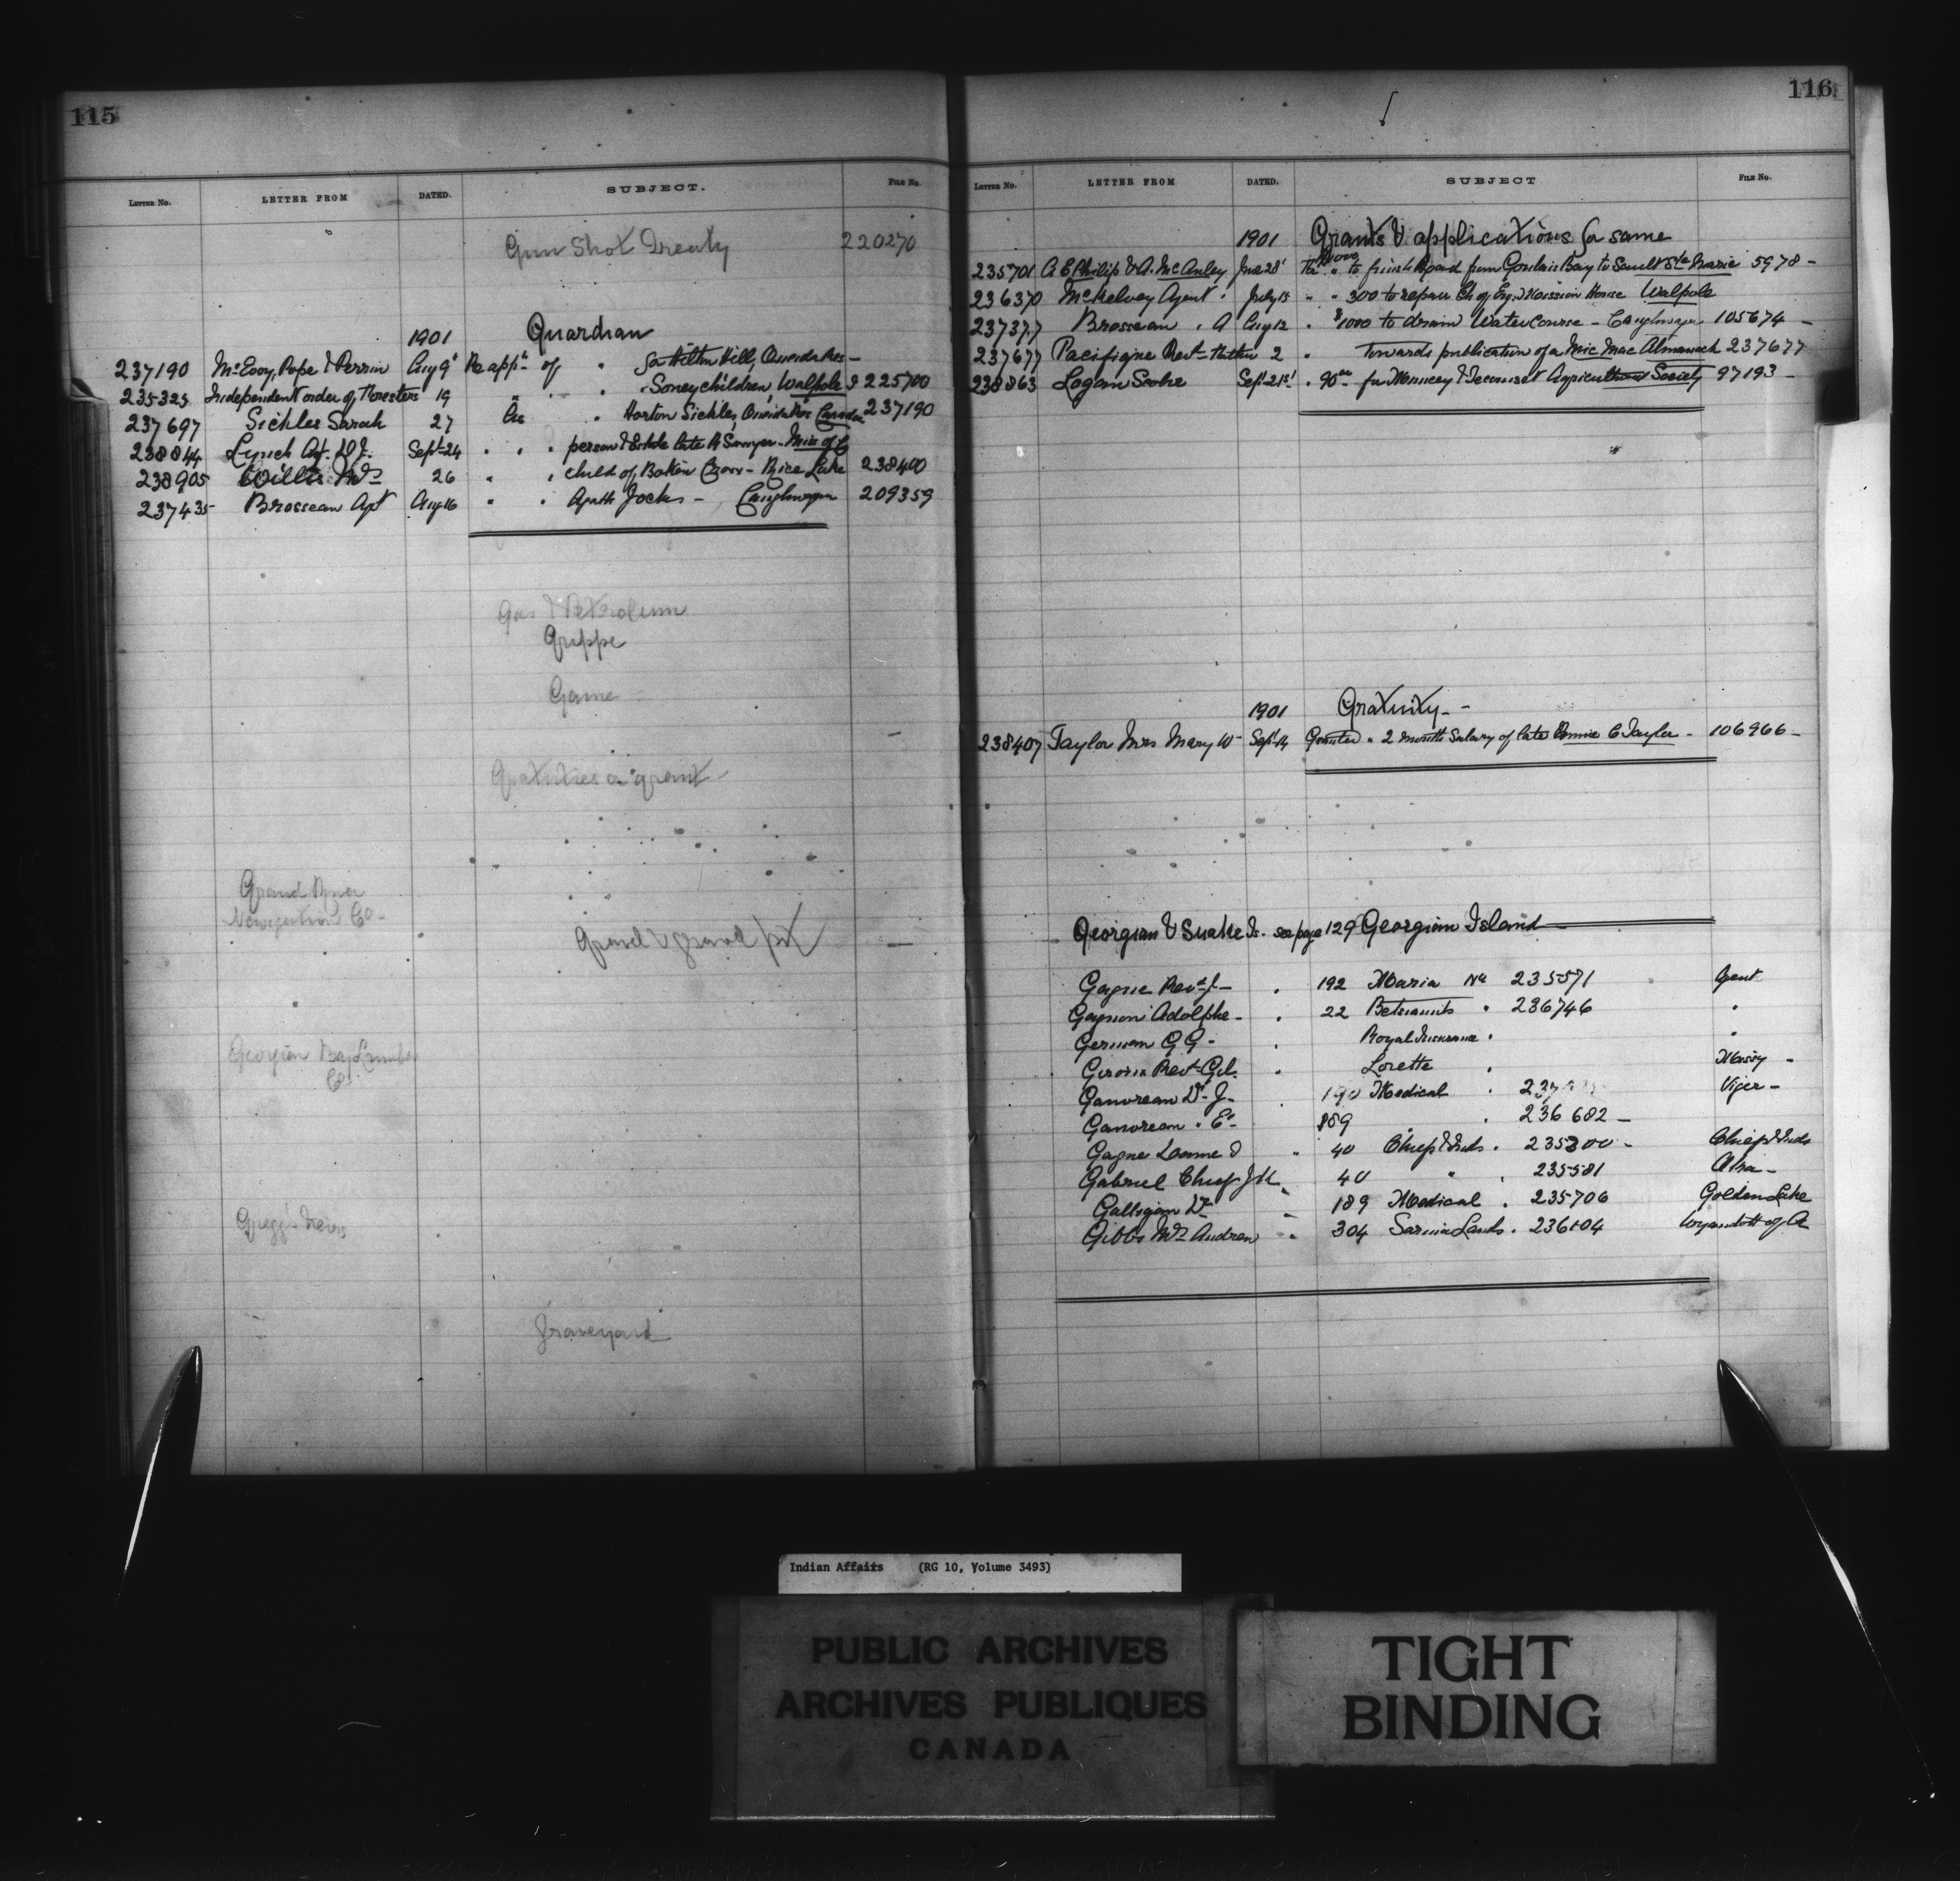 115
LETTER NO. LETTER FROM DATED. SUBJECT. FILE NO.
Gun Shot Treaty 220270
1901 Guardian
237190 McEvoy, Pope & Perrin Aug 9 Re appn of " for Hilton Hill, Oneida Res -
235325 Independent order of Foresters 19 " " " Soney children, Walpole I 225700
237697 Sickles Sarah 27 As " Horton Sickles, Oneida Res 237190
238844 Lynch Agt. D.J. Sept 24 " " " person & Estate late Sawyer - Miss of C
238905 Willis Wm 26 " " child of Crow - Rice Lake 238400
237435 Brosseau Agt Aug 16 " " Agath Jocks - Caughnawaga 209359
Gas & Petroleum
Grippe
Game
Gratuities or grant
Grand River
Navigation Co -
Gravel & gravel pit
Georgian Bay Lumber
Co
Gregg's heirs
Graveyard
116
LETTER NO. LETTER FROM DATED. SUBJECT FILE NO.
1901 Grants & applications for same
235701 A E Philip & A. McAuley June 28 $1000 to finish Road from Goulais Bay to Sault Ste Marie 5978 -
236370 McKelvey Agent July 15 " " 300 to repair Ch of Eng. Mission House Walpole
237377 Brosseau . A Aug 12 " $1000 to drain Water Course - Caughnawaga 105674 -
237677 Pacifique Revd Father 2 " Towards publication of a Mic Mac Almanack 237677
238863 Logan Scobe Sept 21st " 90 00 for Muncey & Tecumset Agricultural Society 97193 -
1901 Gratuity -
238407 Taylor Mrs Mary W Sept 14 Granted " 2 month Salary of late C Taylor - 106966 -
Georgian & Snake Is. see page 129 Georgian Island
Gagne Revd J - " 192 Maria No 235571 Agent
Gagnon Adolphe - " 22 Betsiamits " 236746 "
German G G - " Royal Insurance " "
Giroux Revd Gd. " Lorette " Massy -
Ganvreau Dr J - " 190 Medical " Viger -
Ganvreau " E - 189 " 236682 -
Gagne " 40 Chief & Inds . 235200 - Chief & Inds
Gabriel Chief " 40 " " 235581
Galligan Dr " 189 Medical . 235706 Golden Lake
Gibbs Wm Andrew " 304 Sarnia Lands . 236104 Wyandott of A
Indian Affairs (RG 10, Volume 3493)
PUBLIC ARCHIVES
ARCHIVES PUBLIQUES
CANADA
TIGHT
BINDING